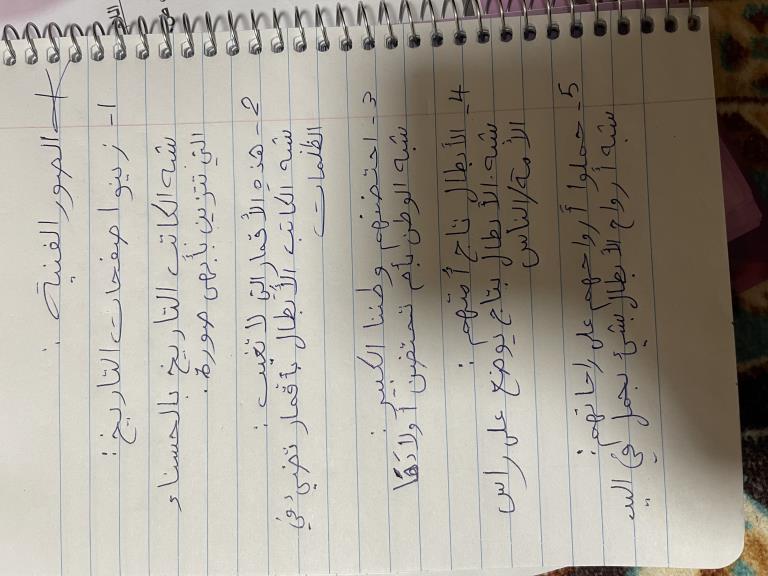 الصور الفنية :
1- زينوا صفحات التاريخ :
شبه الكاتب التاريخ بالحسناء
التي تتزين بأبهى صورة.
2- هذه الأقمار التي لا تغيب :
شبه الكاتب الأبطال بأقمار تضيء في
الظلمات
3- احتضنهم وطننا الكبير :
شبه الوطن بأم تحتضن أولادها
4- الأبطال تاج أمتهم :
شبه الأبطال بتاج يوضع على رأس
الأمة/الناس
5- حملوا أرواحهم على راحاتهم :
شبه أرواح الأبطال بشيء يحمل في اليد